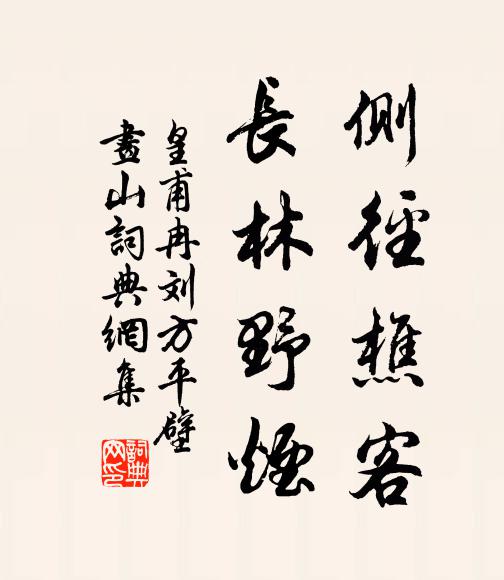 側徑樵客
長林野煙
皇甫冉刘方平壁
畫山詞典網集
詞典网印